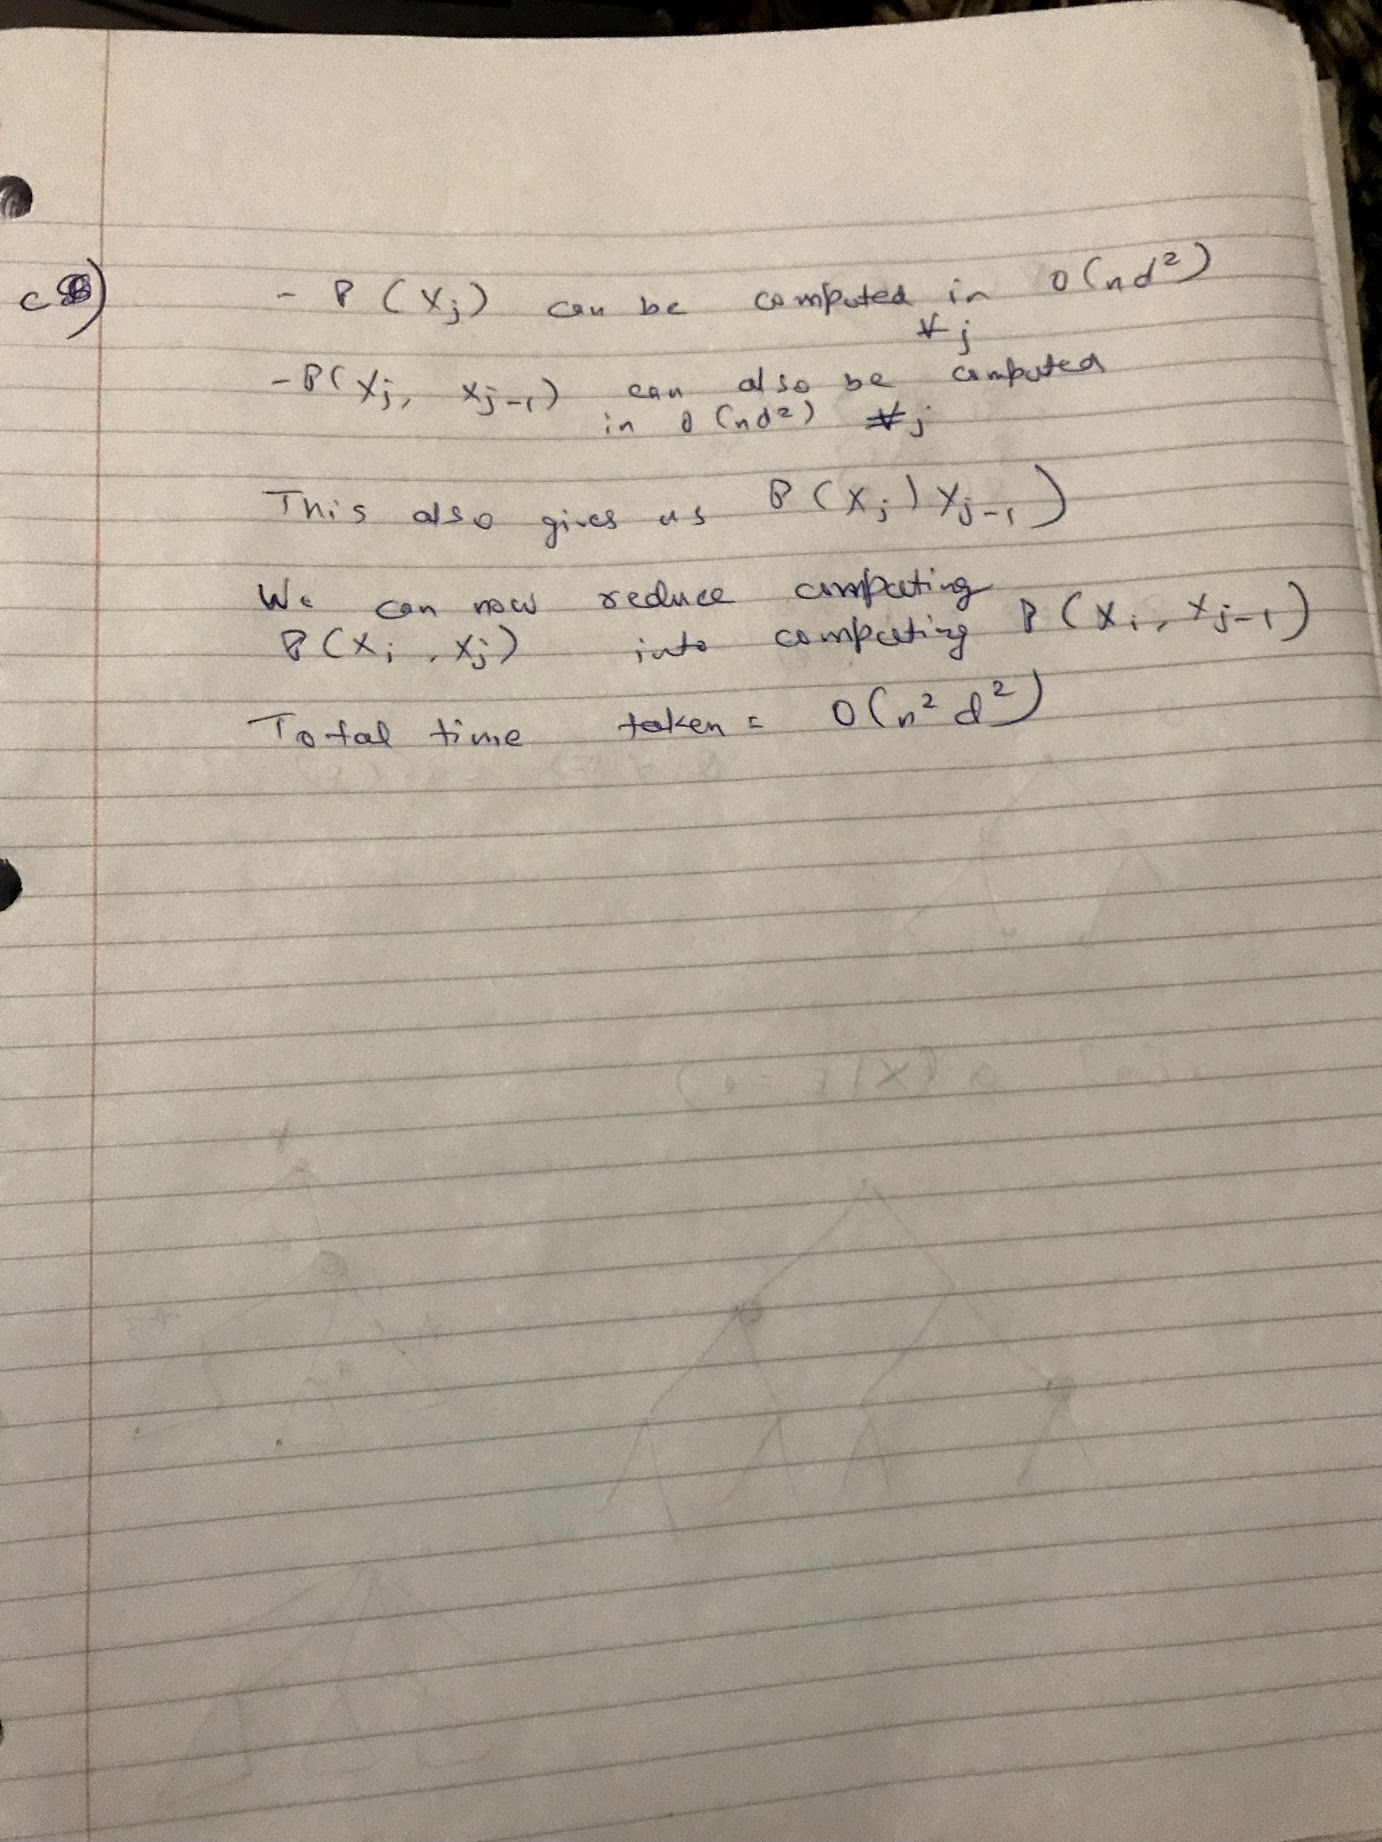 c)
- P(Xj) can be computed in O(nd²)
∀j
- P(Xj, Xj-1) can also be computed
in O(nd²) ∀j
This also gives us P(Xj | Xj-1)
We can now reduce computing
P(Xi, Xj) into computing P(Xi, Xj-1)
Total time taken = O(n²d²)